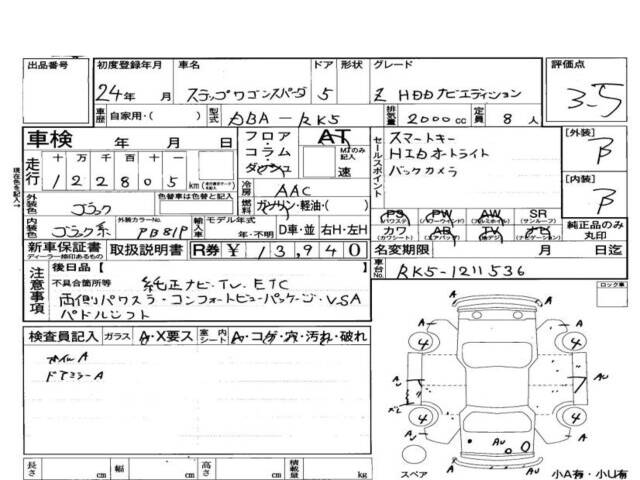 出品番号 初度登録年月 車名 ドア 形状 グレード 評価点
24年 月 ステップワゴンスパーダ 5 Z HDDナビエディション 3.5
車歴 自家用・( ) 型式 DBA-RK5 排気量 2000cc 定員 8人
車検 年 月 日 フロア・コラム・ダッシュ AT MTのみ記入 速 セールスポイント スマートキー [外装] B
HIDオートライト
バックカメラ
現在色を記入→
走行 十 万 千 百 十 122805 km 冷房 AAC [内装] B
外装色 ブラック 色替車は色替と記入 燃料 ガソリン・軽油・( )
PS (パワステ) PW (パワーウインド) AW (アルミホイル) SR (サンルーフ)
内装色 ブラック系 外装カラーNo. PB81P 輸入車 モデル年式 年・不明 D車・並 右H・左H カワ (カワシート) AB (エアバッグ) TV (地デジ) ナビ (ナビゲーション) 純正品のみ丸印
新車保証書 ディーラー捺印あるもの 取扱説明書 R券 ¥13,940 名変期限 月 日迄
車台No. RK5-1211536
注意事項 後日品 [ ]
不具合箇所等 純正ナビ.TV.ETC
両側パワスラ・コンフォートビューパッケージ・VSA
パドルシフト
ロック車
検査員記入 ガラス A・X要ス 室内シート A・コゲ・穴・汚れ・破れ
オイルA
ドアミラーA
A A
4 4
A A
AU
4 4
AU
A A
長さ cm 幅 cm 高さ cm 積載量 kg
スペア 小A有・小U有